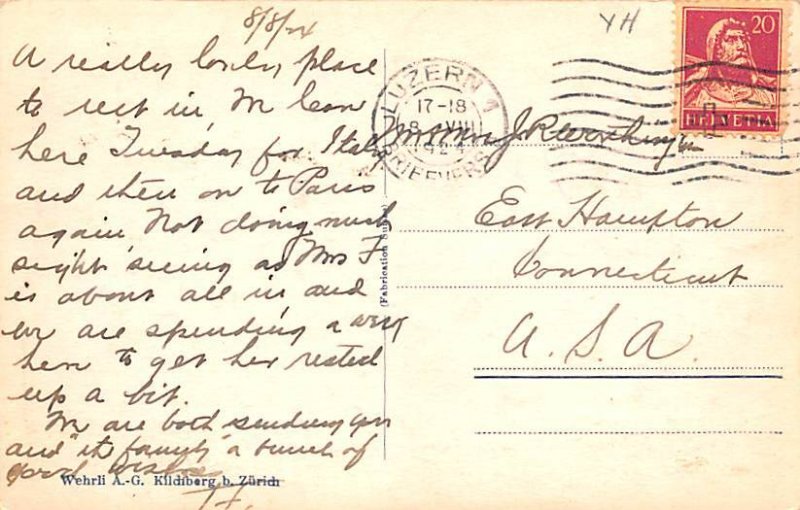 8/8/24
YH
A really lovely place
to rest in, We leave
here Tuesday for Italy
and then on to Paris
again. Not doing much
sight seeing as Mrs F
is about all in and
we are spending a week
here to get her rested
up a bit.
We are both sending you
and "the family" a bunch of
good wishes
20
HELVETIA
LUZERN 1
17-18
8. VIII
1924
BRIEFVERS
East Hampton
Connecticut
U.S.A.
(Fabrication Suisse)
Wehrli A.-G. Kilchberg b. Zürich